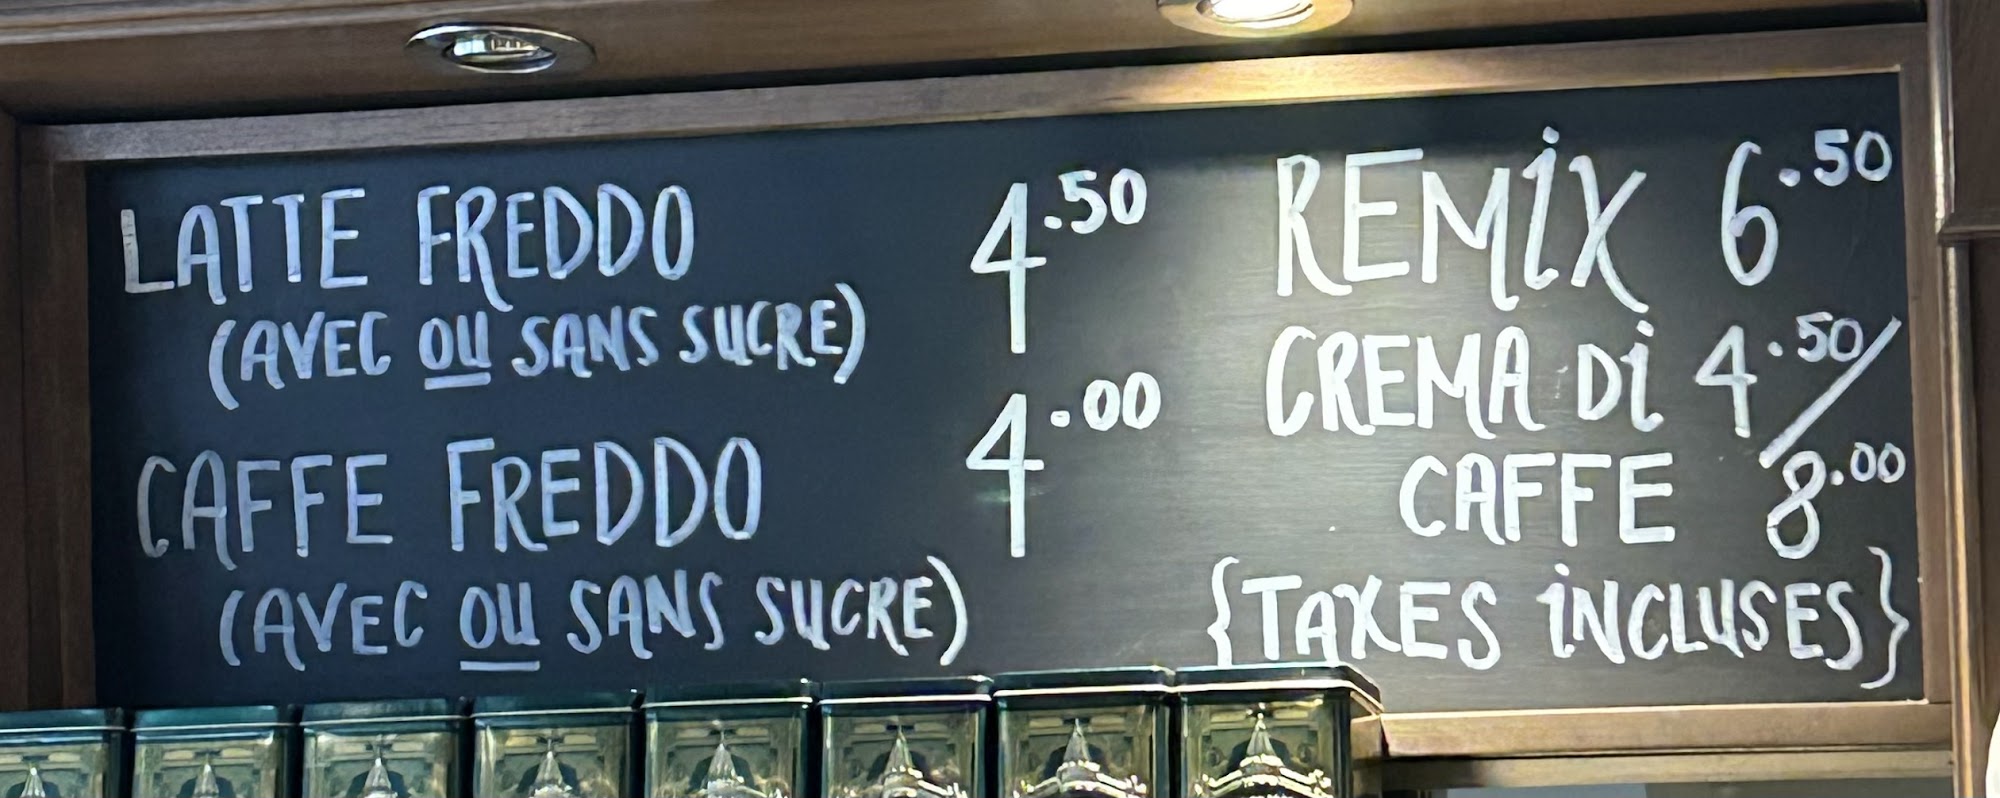 LATTE FREDDO 4.50
(AVEC OU SANS SUCRE)
CAFFE FREDDO 4.00
(AVEC OU SANS SUCRE)
REMIX 6.50
CREMA DI 4.50/
CAFFE 8.00
{TAXES INCLUSES}